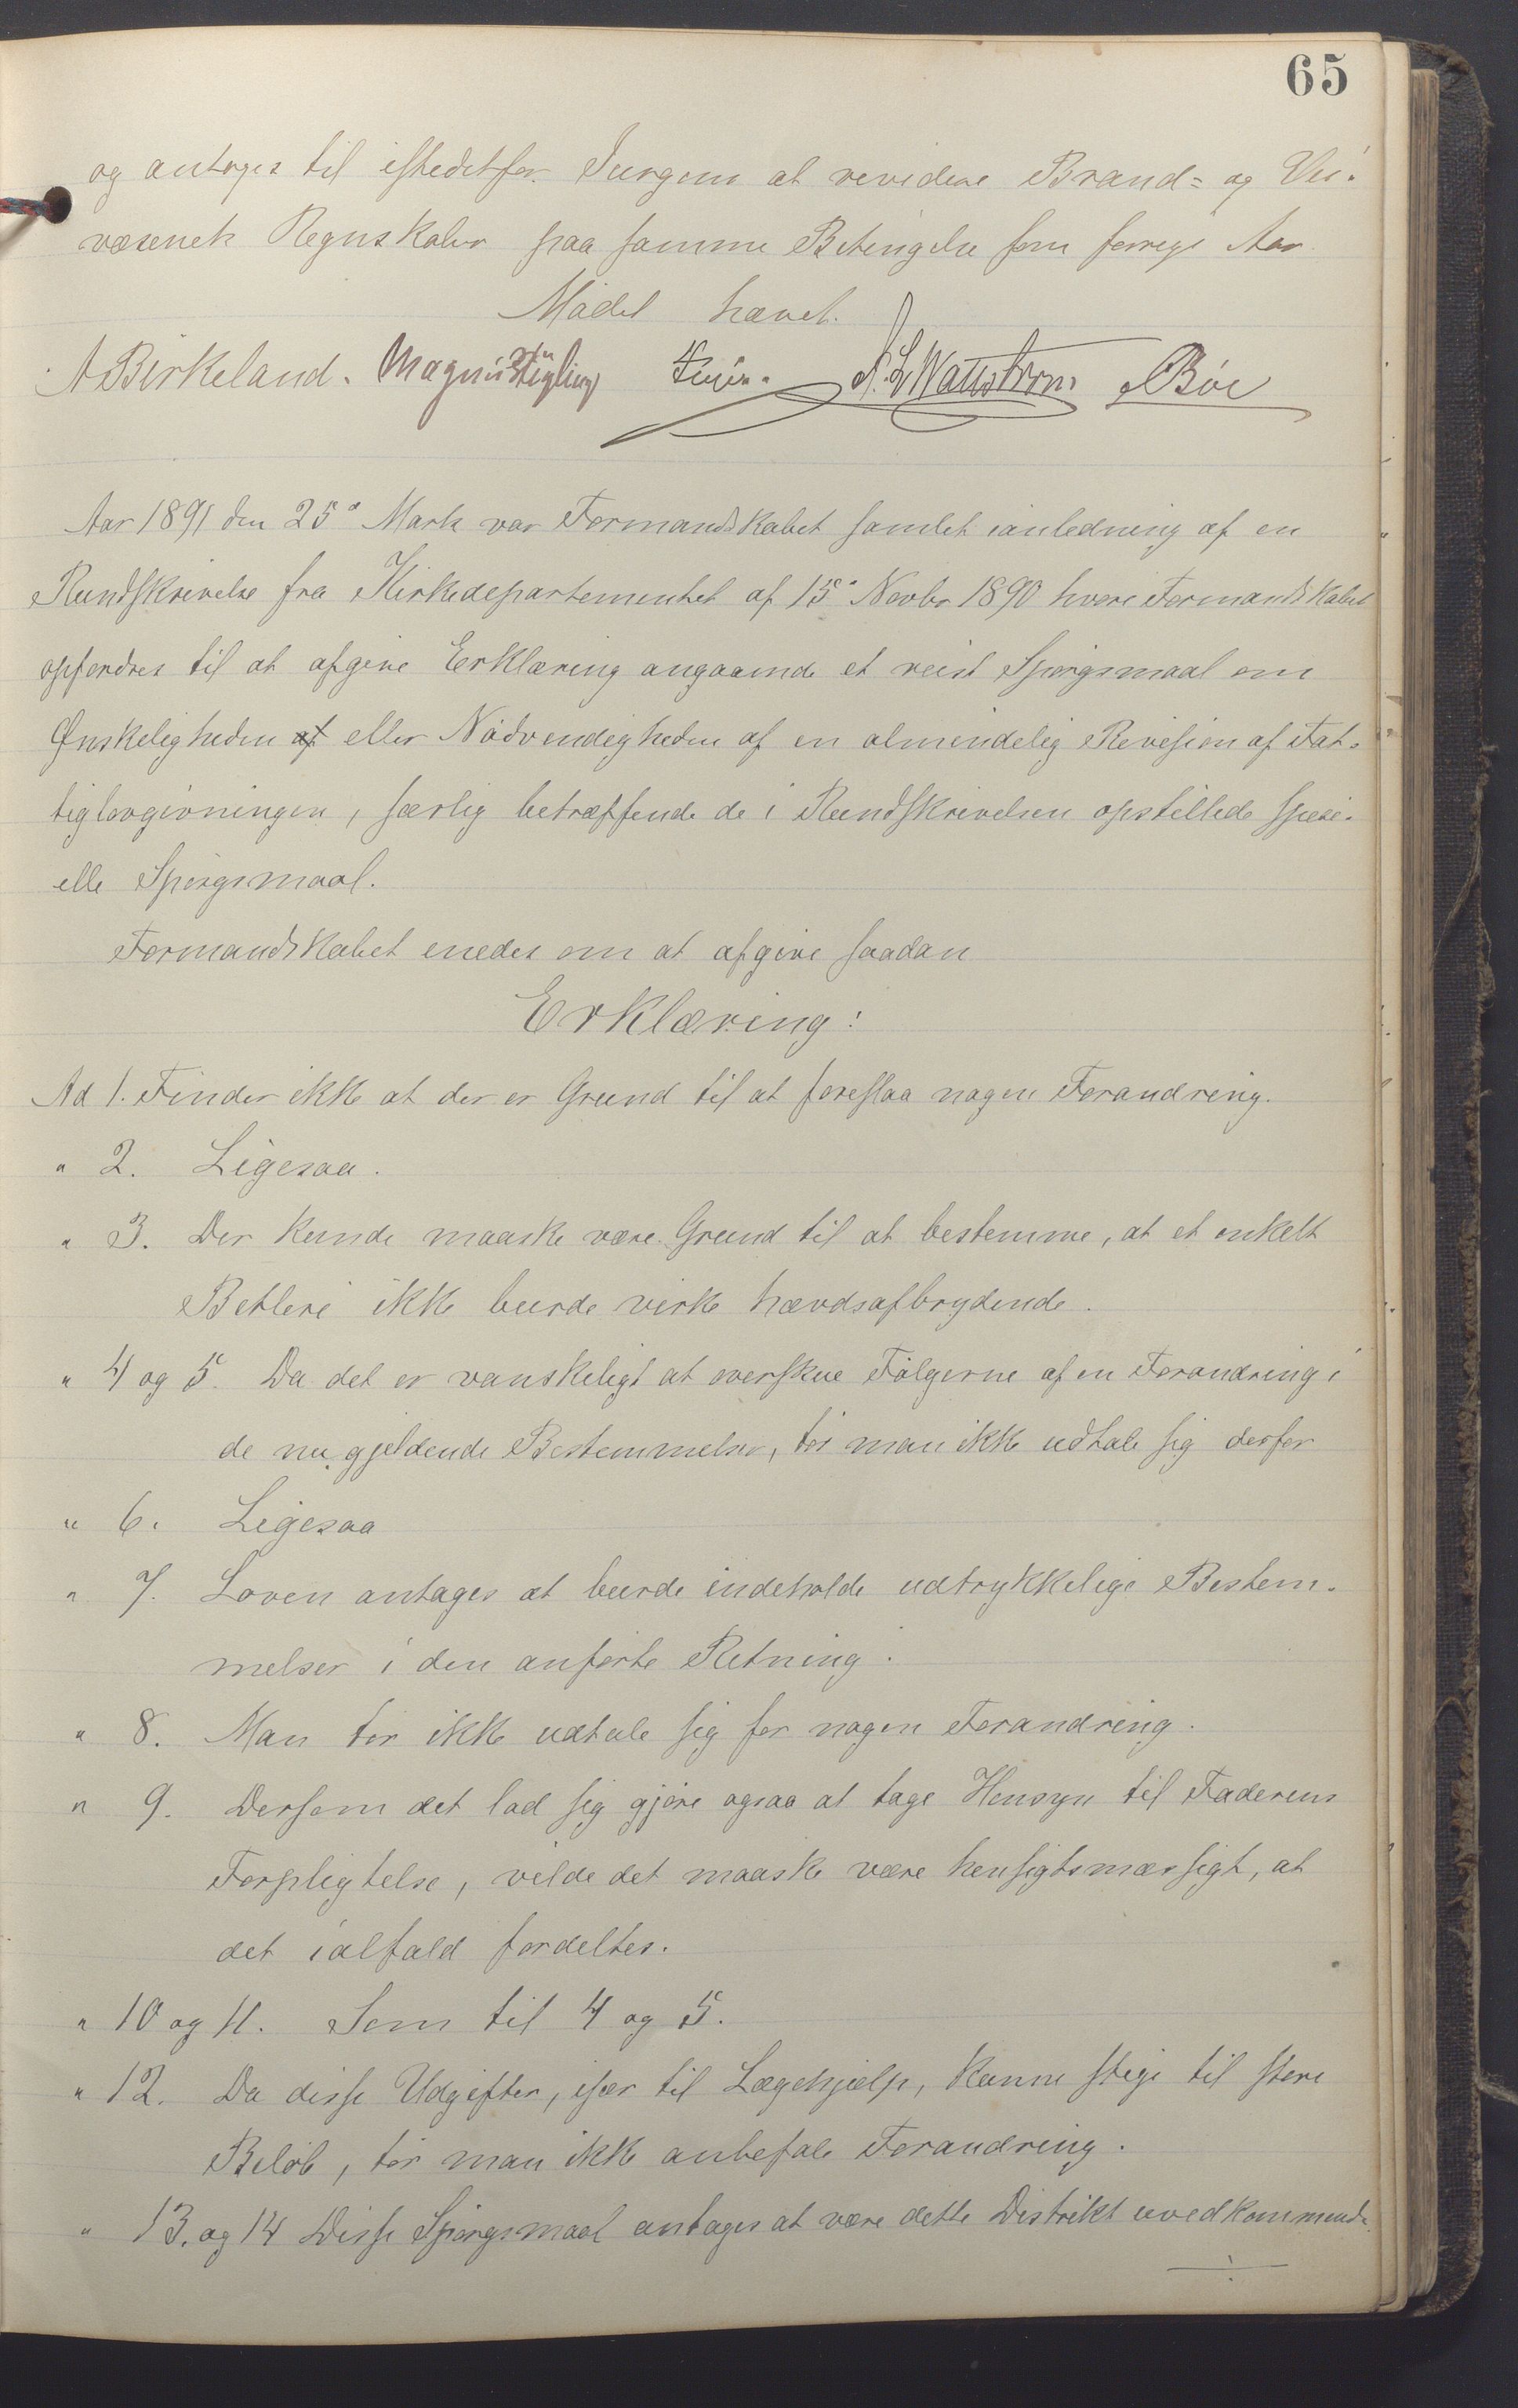 65
og antoges til istedetfor Jurgens at revidere Brand= og Vei-
væsenets Regnskaber paa samme Betingelse som forrige Aar
Mødet hævet.
A Birkeland. Magnus Stigling Wattstrøm Bøe
Aar 1891 den 25de Marts var Formandskabet samlet ianledning af en
Rundskrivelse fra Kirkedepartementet af 15de Novbr 1890 hvori Formandskabet
opfordres til at afgive Erklæring angaaende et reist Spørgsmaal om
Ønskeligheden af eller Nødvendigheden af en almindelig Revision af Fat-
tiglovgivningen, særlig betræffende de i Rundskrivelsen opstillede speci-
elle Spørgsmaal.
Formandskabet enedes om at afgive saadan
Erklæring:
Ad 1. Finder ikke at der er Grund til at foreslaa nogen Forandring.
" 2. Ligesaa.
" 3. Der kunde maaske være Grund til at bestemme, at et enkelt
Betleri ikke burde virke hævdsafbrydende.
" 4 og 5. Da det er vanskeligt at overskue Følgerne af en Forandring i
de nu gjældende Bestemmelser, tør man ikke udtale sig derfor
" 6. Ligesaa
" 7. Loven antages at burde indeholde udtrykkelige Bestem-
melser i den anførte Retning.
" 8. Man tør ikke udtale sig for nogen Forandring.
" 9. Dersom det lod sig gjøre ogsaa at tage Hensyn til Faderens
Forpligtelse, vilde det maaske være hensigtsmæssigt, at
det ialfald fordeltes.
" 10 og 11. Som til 4 og 5.
" 12. Da disse Udgifter, især til Lægehjælp, kunne stige til store
Beløb, tør man ikke anbefale Forandring.
" 13. og 14 Disse Spørgsmaal antages at være dette Distrikt uvedkommende.